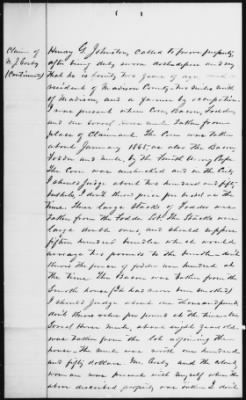 Claim of
N. J. Cosby
(Continued)
Henry G. Johnston, Called to prove property
after being duly sworn deposes and say
that he is twenty two years of age and a
resident of Madison County two miles north
of Madison, and a farmer by occupation
I was present when Corn, Bacon, Fodder,
and one sorrel mule Taken from
place of Claimant. The Corn was taken
about January 1865, as also The Bacon,
Fodder and mule, by the United Army
The Corn was unshucked and in the Crib,
I should judge about two hundred and fifty
bushels, I don't know price per bushel at the
time. Three large Stacks of Fodder was
taken from the Fodder lot. The Stacks were
large double ones, and should suppose
fifteen hundred bundles which would
average two pounds to the bundle. don't
know the price of fodder per hundred at
The time. The Bacon was taken from the
Smoke house
I should Judge about one thousand pounds,
don't know value per pound at the time. One
Sorrel Horse mule, about eight years old
was taken from the lot adjoining the
house. The mule was worth one hundred
and fifty dollars. Mr. Cosby and the
woman was present with myself when the
above described property was taken. I did